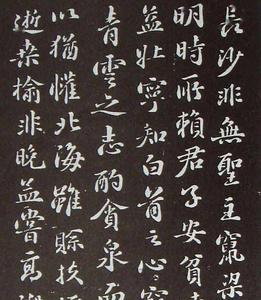 長沙非無聖主竄梁
明時所賴君子安貧
益壯寧知白首之心
青雲之志酌貪泉而
以猶懽北海雖賒扶
逝桑榆非晚孟嘗高